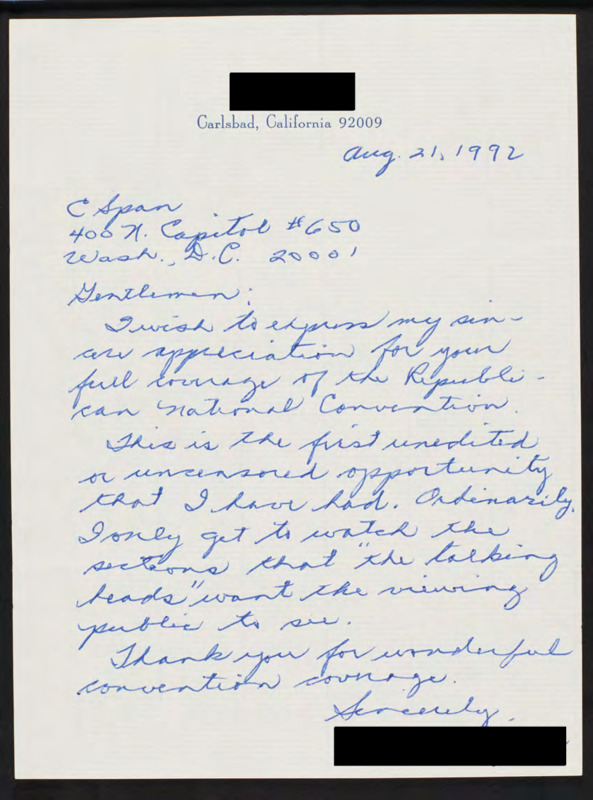 Carlsbad, California 92009
Aug. 21, 1992
C Span
400 N. Capitol #650
Wash., D.C. 20001
Gentlemen:
I wish to express my sin-
cere appreciation for your
full coverage of the Republi-
can National Convention.
This is the first unedited
or uncensored opportunity
that I have had. Ordinarily,
I only get to watch the
sections that "the talking
heads" want the viewing
public to see.
Thank you for wonderful
convention coverage.
Sincerely,